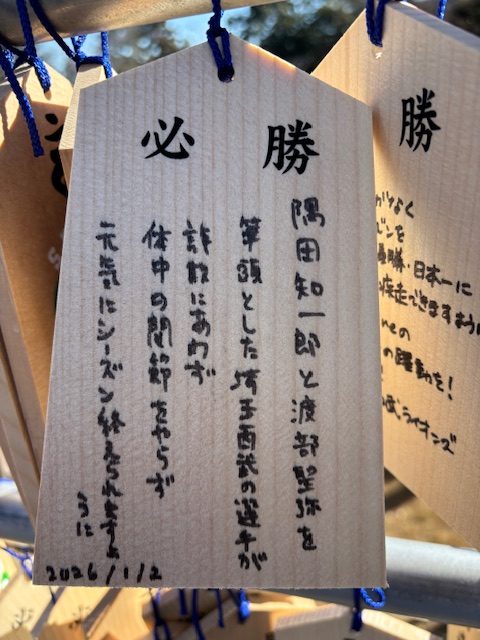 必勝
隅田知一郎と渡部聖弥を
筆頭とした埼玉西武の選手が
詐欺にあわず
体中の関節をやらず
元気にシーズン終えられますよ
うに
2026/1/2
勝
なく
ンを
勝・日本一に
疾走できますように
neの
の躍動を!
武ライオンズ